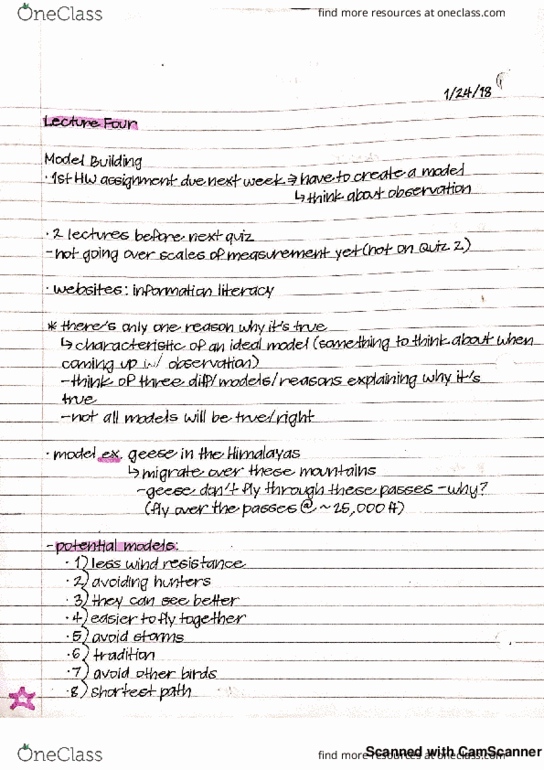 OneClass
find more resources at oneclass.com
1/24/18
Lecture Four
Model Building
· 1st HW assignment due next week → have to create a model
↳ think about observation
· 2 lectures before next quiz
- not going over scales of measurement yet (not on Quiz 2)
· websites: information literacy
* there's only one reason why it's true
↳ characteristic of an ideal model (something to think about when
coming up w/ observation)
- think of three diff/models/reasons explaining why it's
true
- not all models will be true/right
· model ex. geese in the Himalayas
↳ migrate over these mountains
- geese don't fly through these passes - why?
(fly over the passes @ ~25,000 ft)
- potential models:
· 1) less wind resistance
· 2) avoiding hunters
· 3) they can see better
· 4) easier to fly together
· 5) avoid storms
· 6) tradition
· 7) avoid other birds
· 8) shortest path
OneClass
find more resources at oneclass.com
Scanned with CamScanner